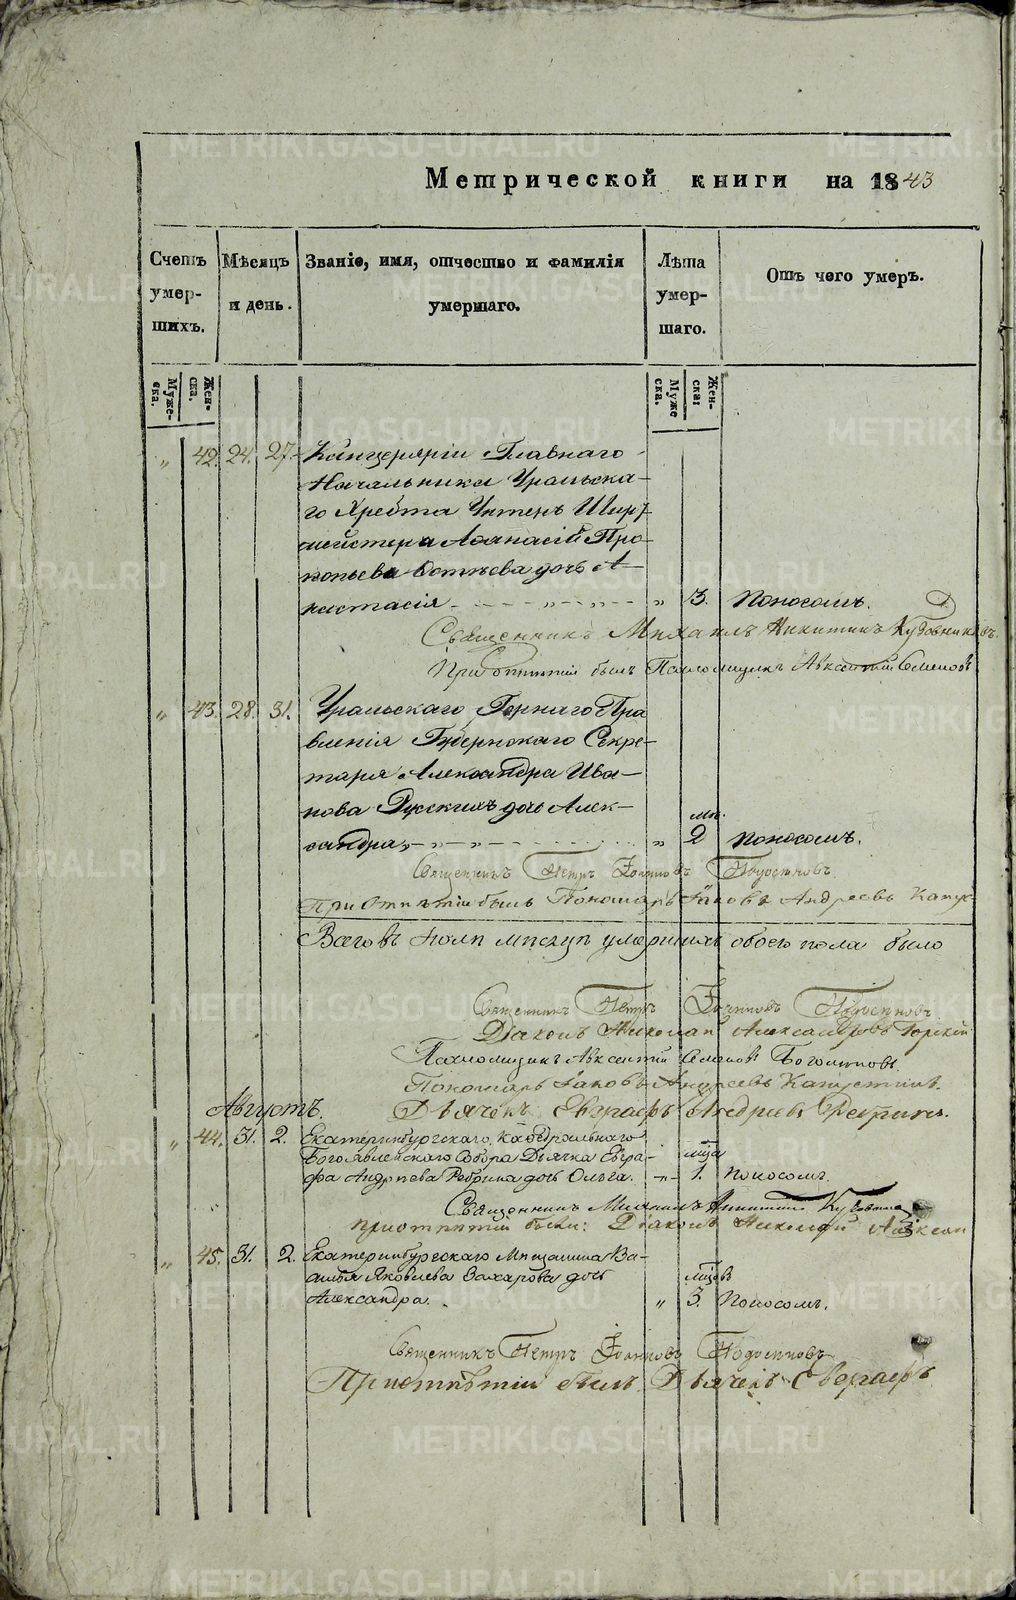 Метрической книги на 1843
Счетъ умерших.
Мѣсяцъ и день.
Званіе, имя, отчество и фамилія умершаго.
Лѣта умершаго.
Отъ чего умеръ.
Муже-ска.
Жен-ска.
Муже ска.
Жен-ска:
„ 42. 24. 27. Канцеляріи Главнаго
Начальника Уральска-
го Хребта Унтеръ Ших-
мейстера Аѳанасій Про-
копьева дочь А-
настасія „ 3. Поносомъ.
Священникъ Михаилъ Никитинъ
При отпѣтіи былъ Псаломщикъ Авксентій Семеновъ
„ 43. 28. 31. Уральскаго Горнаго Пра
вленія Губернскаго Секре-
таря Александра Ива-
нова Русскихъ дочь Алек-
сандра „ мѣ. 2 Поносомъ.
Священникъ Петръ Іоанновъ
При Отпѣтіи былъ Пономарь Іаковъ Андреевъ Капус
Всего въ Іюлѣ мѣсяцѣ умершихъ обоего пола было
Священникъ Петръ Іоанновъ
Діаконъ Николай Александровъ
Псаломщикъ Авксентій Семеновъ Богомоловъ
Пономарь Іаковъ Андреевъ Капустинъ.
Августъ.
Дьячекъ Евграфъ Андреевъ Ребринъ.
„ 44. 31. 2. Екатеринбургскаго Каѳедральнаго
Богоявленскаго Собора Дьячка Евгра-
фа Андреева Ребрина дочь Ольга. „ мѣца 1. Поносомъ.
Священникъ Михаилъ Никитинъ
При отпѣтіи были: Діаконъ Николай Алексан
„ 45. 31. 2. Екатеринбургскаго Мещанина Ва-
силья Яковлева Захарова дочь
Александра. „ мѣцовъ 3. Поносомъ.
Священникъ Петръ Іоанновъ
При отпѣтіи былъ Дьячекъ Евграфъ
METRIKI.GASO-URAL.RU